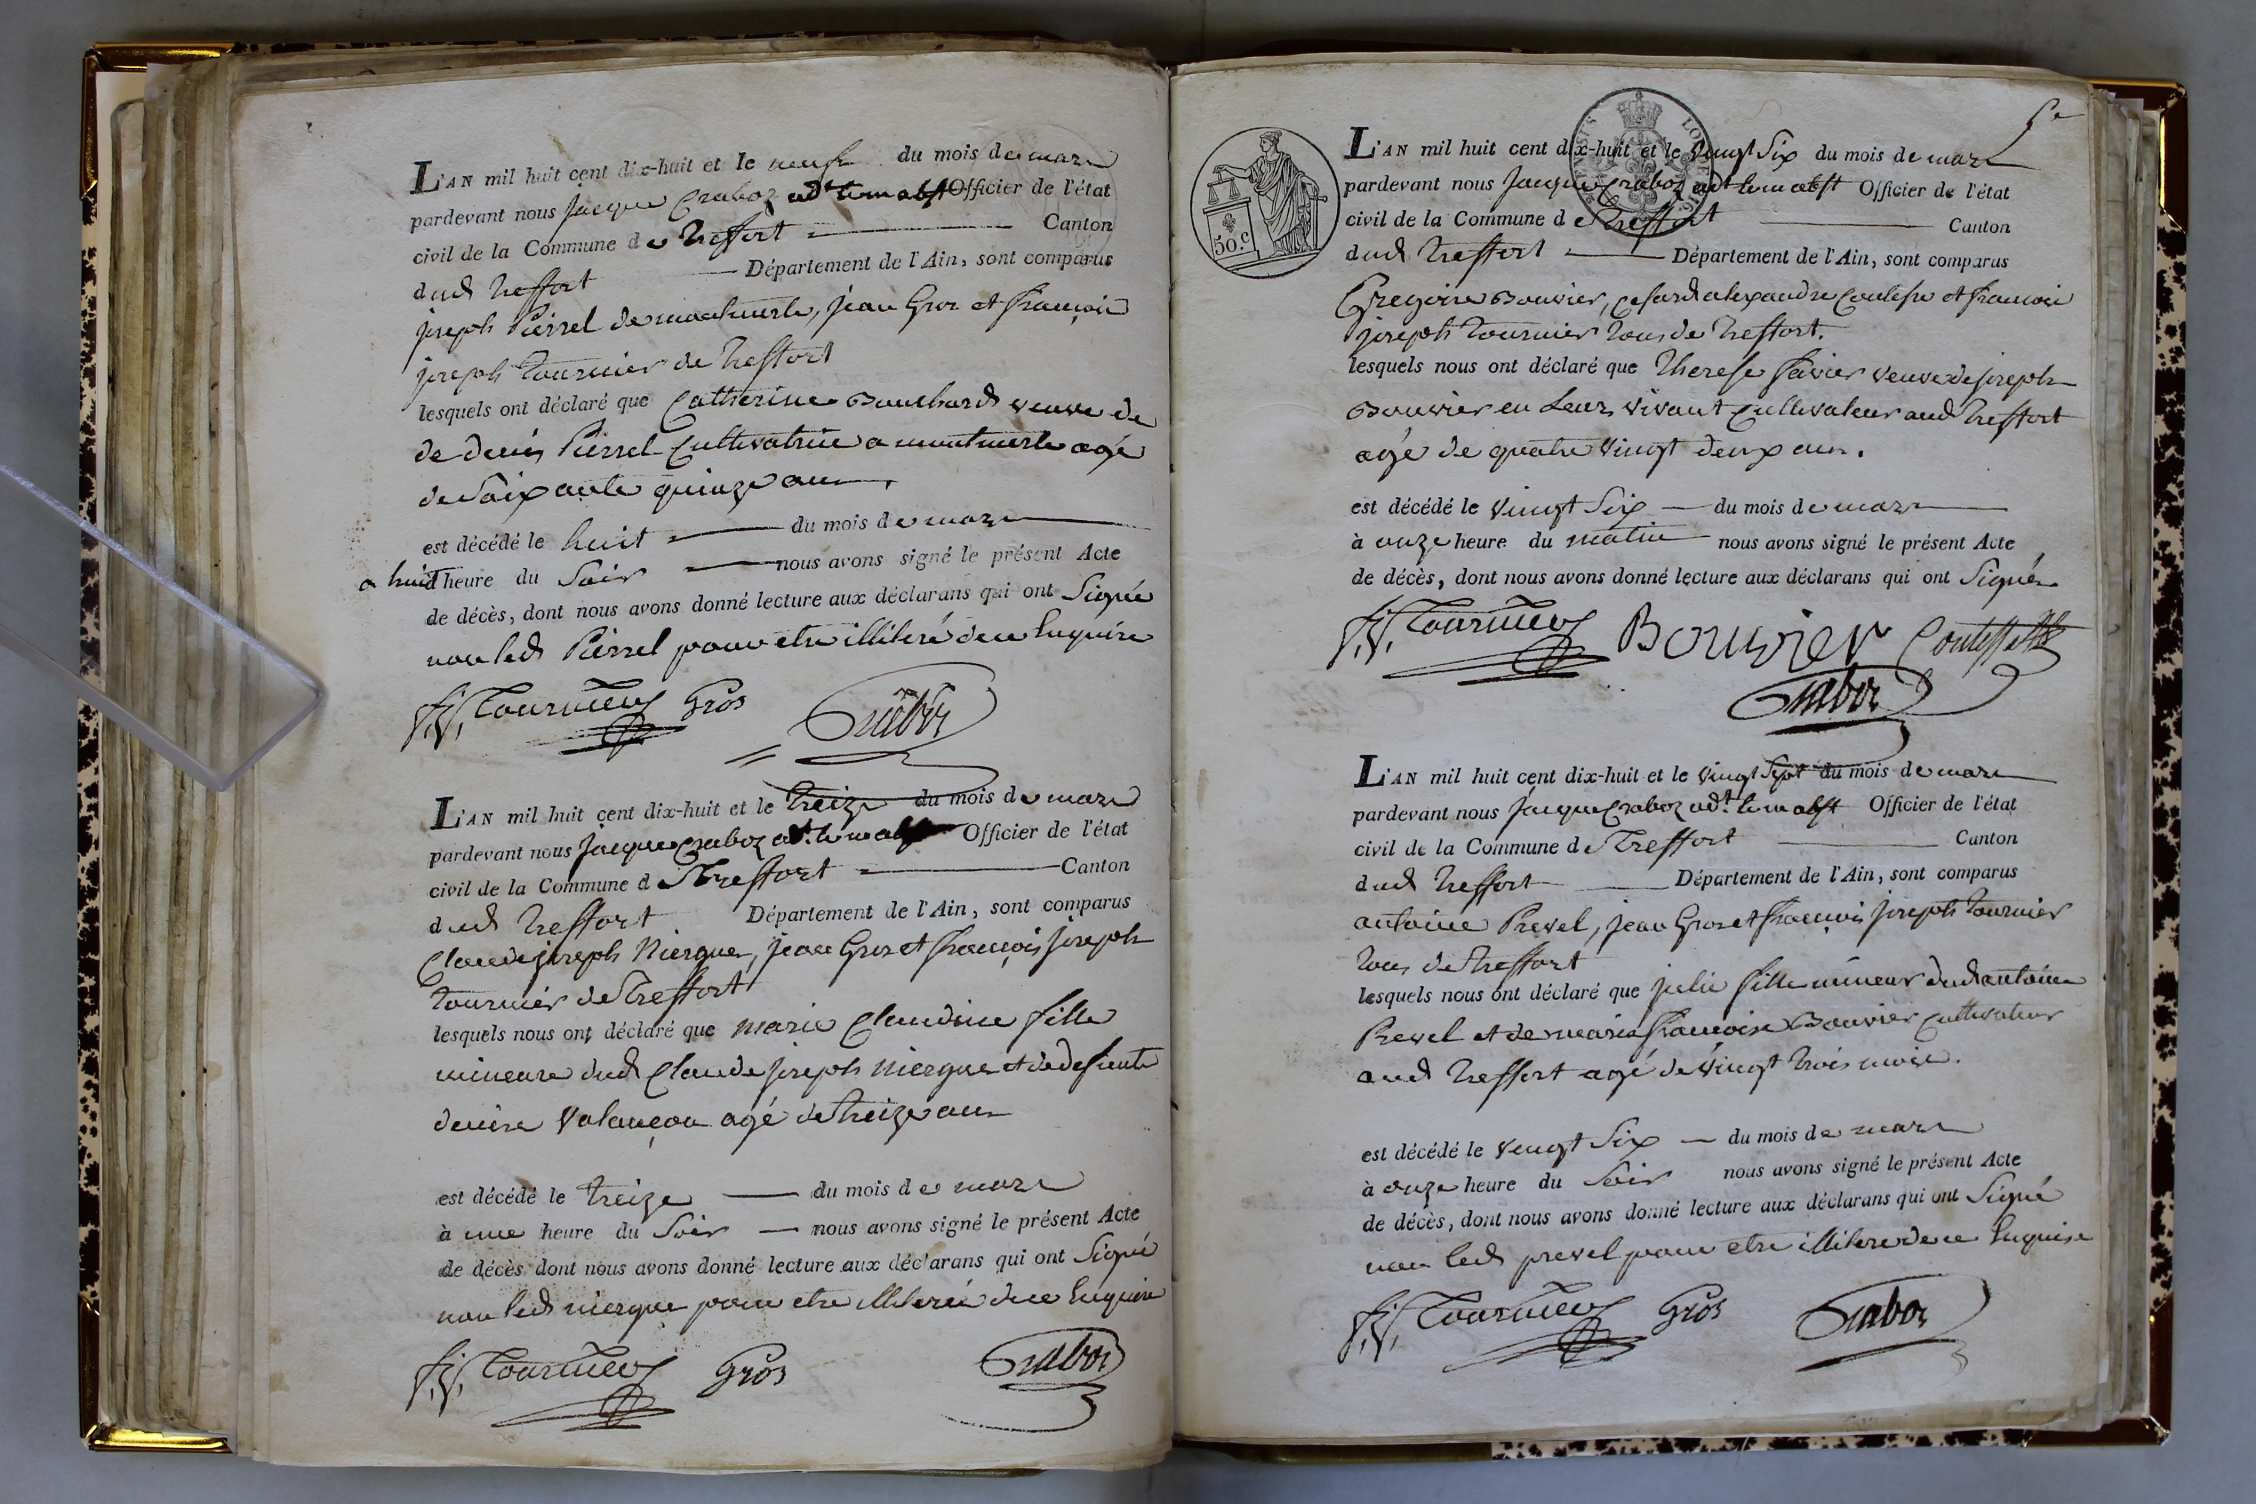 L'AN mil huit cent dix-huit et le neuf du mois de mars
pardevant nous jacque Craboz adt le m abst Officier de l'état
civil de la Commune de treffort Canton
dud treffort Département de l'Ain, sont comparus
joseph Pirrel de montmerle, jean Gros et françois
joseph tournier de treffort
lesquels ont déclaré que Catherine Bouchard veuve de
de denis Pirrel Cultivatrice a montmerle agé
de Soixante quinze ans
est décédé le huit du mois de mars
a huit heure du Soir nous avons signé le présent Acte
de décès, dont nous avons donné lecture aux déclarans qui ont Signé
non led Pirrel pour etre illiteré de ce Enquire
f. j. Tournier Gros Craboz
L'AN mil huit cent dix-huit et le treize du mois de mars
pardevant nous jacque Craboz adt. le m abst Officier de l'état
civil de la Commune de Treffort Canton
dud treffort Département de l'Ain, sont comparus
Claude joseph Niergue, jean Gros et françois joseph
tournier de Treffort
lesquels nous ont déclaré que marie Claudine fille
mineure dud Claude joseph niergue et de defunte
denise Valançon agé de treize ans
est décédé le treize du mois de mars
à une heure du Soir nous avons signé le présent Acte
de décès dont nous avons donné lecture aux déclarans qui ont Signé
non led niergue pour etre illiteré de ce Enquire
f. j. Tournier Gros Craboz
5e
50.c
L'AN mil huit cent dix-huit et le vingt Six du mois de mars
pardevant nous Jacque Craboz adt le m abst Officier de l'état
civil de la Commune de Treffort Canton
dud treffort Département de l'Ain, sont comparus
Gregoire Bouvier, Cesard alexandre Coutesse et francois
joseph tournier tous de treffort.
lesquels nous ont déclaré que therese favier veuve de joseph
Bouvier en Leur vivant Cultivateur aud treffort
agé de quatre vingt deux ans.
est décédé le vingt Six du mois de mars
à onze heure du matin nous avons signé le présent Acte
de décès, dont nous avons donné lecture aux déclarans qui ont Signé
f. j. Tournier Bouvier
Craboz
L'AN mil huit cent dix-huit et le vingt Sept du mois de mars
pardevant nous jacque Craboz adt. le m abst Officier de l'état
civil de la Commune de Treffort Canton
dud treffort Département de l'Ain, sont comparus
antoine Prevel, jean Gros et francois joseph tournier
tous de treffort
lesquels nous ont déclaré que julie fille mineur dud antoine
Prevel et de marie francoise Bouvier Cultivateur
aud treffort agé de vingt trois mois.
est décédé le vingt Six du mois de mars
à onze heure du Soir nous avons signé le présent Acte
de décès, dont nous avons donné lecture aux déclarans qui ont Signé
non led prevel pour etre illiteré de ce Enquise
f. j. Tournier Gros Craboz